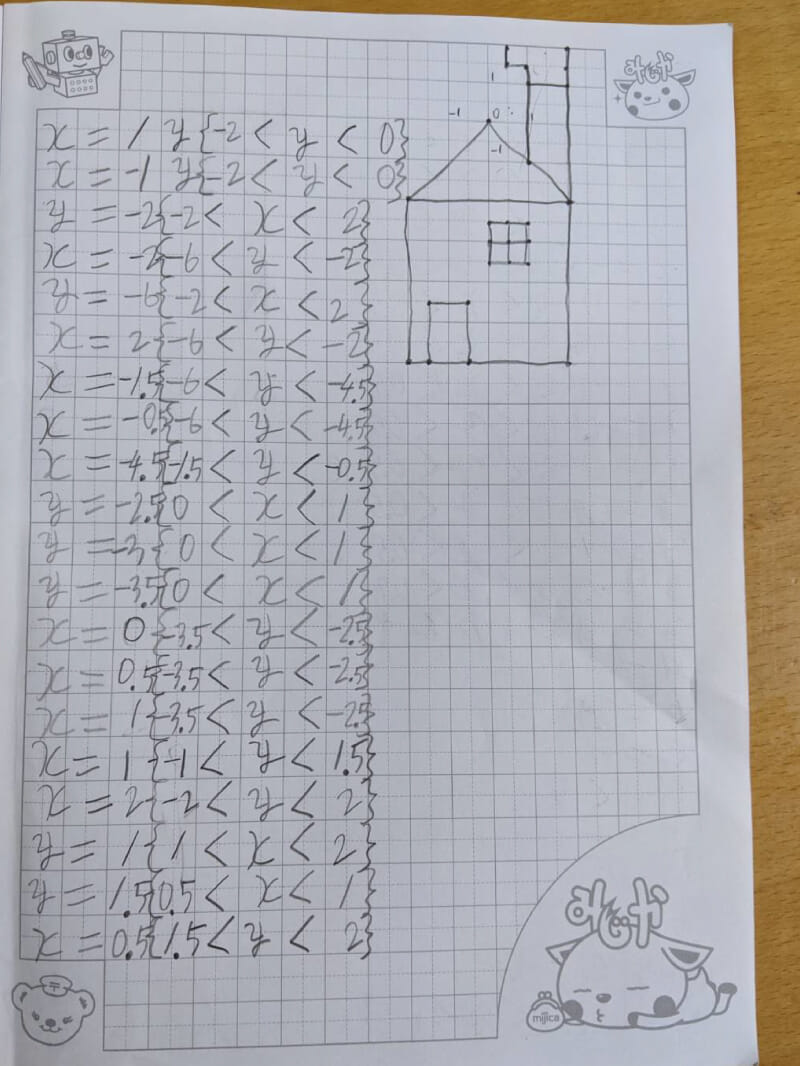 みじか
x = 1 y {-2 < y < 0}
x = -1 y {-2 < y < 0}
y = -2 {-2 < x < 2}
x = -2 {-6 < y < -2}
y = -6 {-2 < x < 2}
x = 2 {-6 < y < -2}
x = -1.5 {-6 < y < -4.5}
x = -0.5 {-6 < y < -4.5}
x = -4.5 {-1.5 < y < -0.5}
y = -2.5 {0 < x < 1}
y = -3 {0 < x < 1}
y = -3.5 {0 < x < 1}
x = 0 {-3.5 < y < -2.5}
x = 0.5 {-3.5 < y < -2.5}
x = 1 {-3.5 < y < -2.5}
x = 1 {-1 < y < 1.5}
x = 2 {-2 < y < 2}
y = 1 {1 < x < 2}
y = 1.5 {0.5 < x < 1}
x = 0.5 {1.5 < y < 2}
1
-1 0 1
-1
みじか
mijica